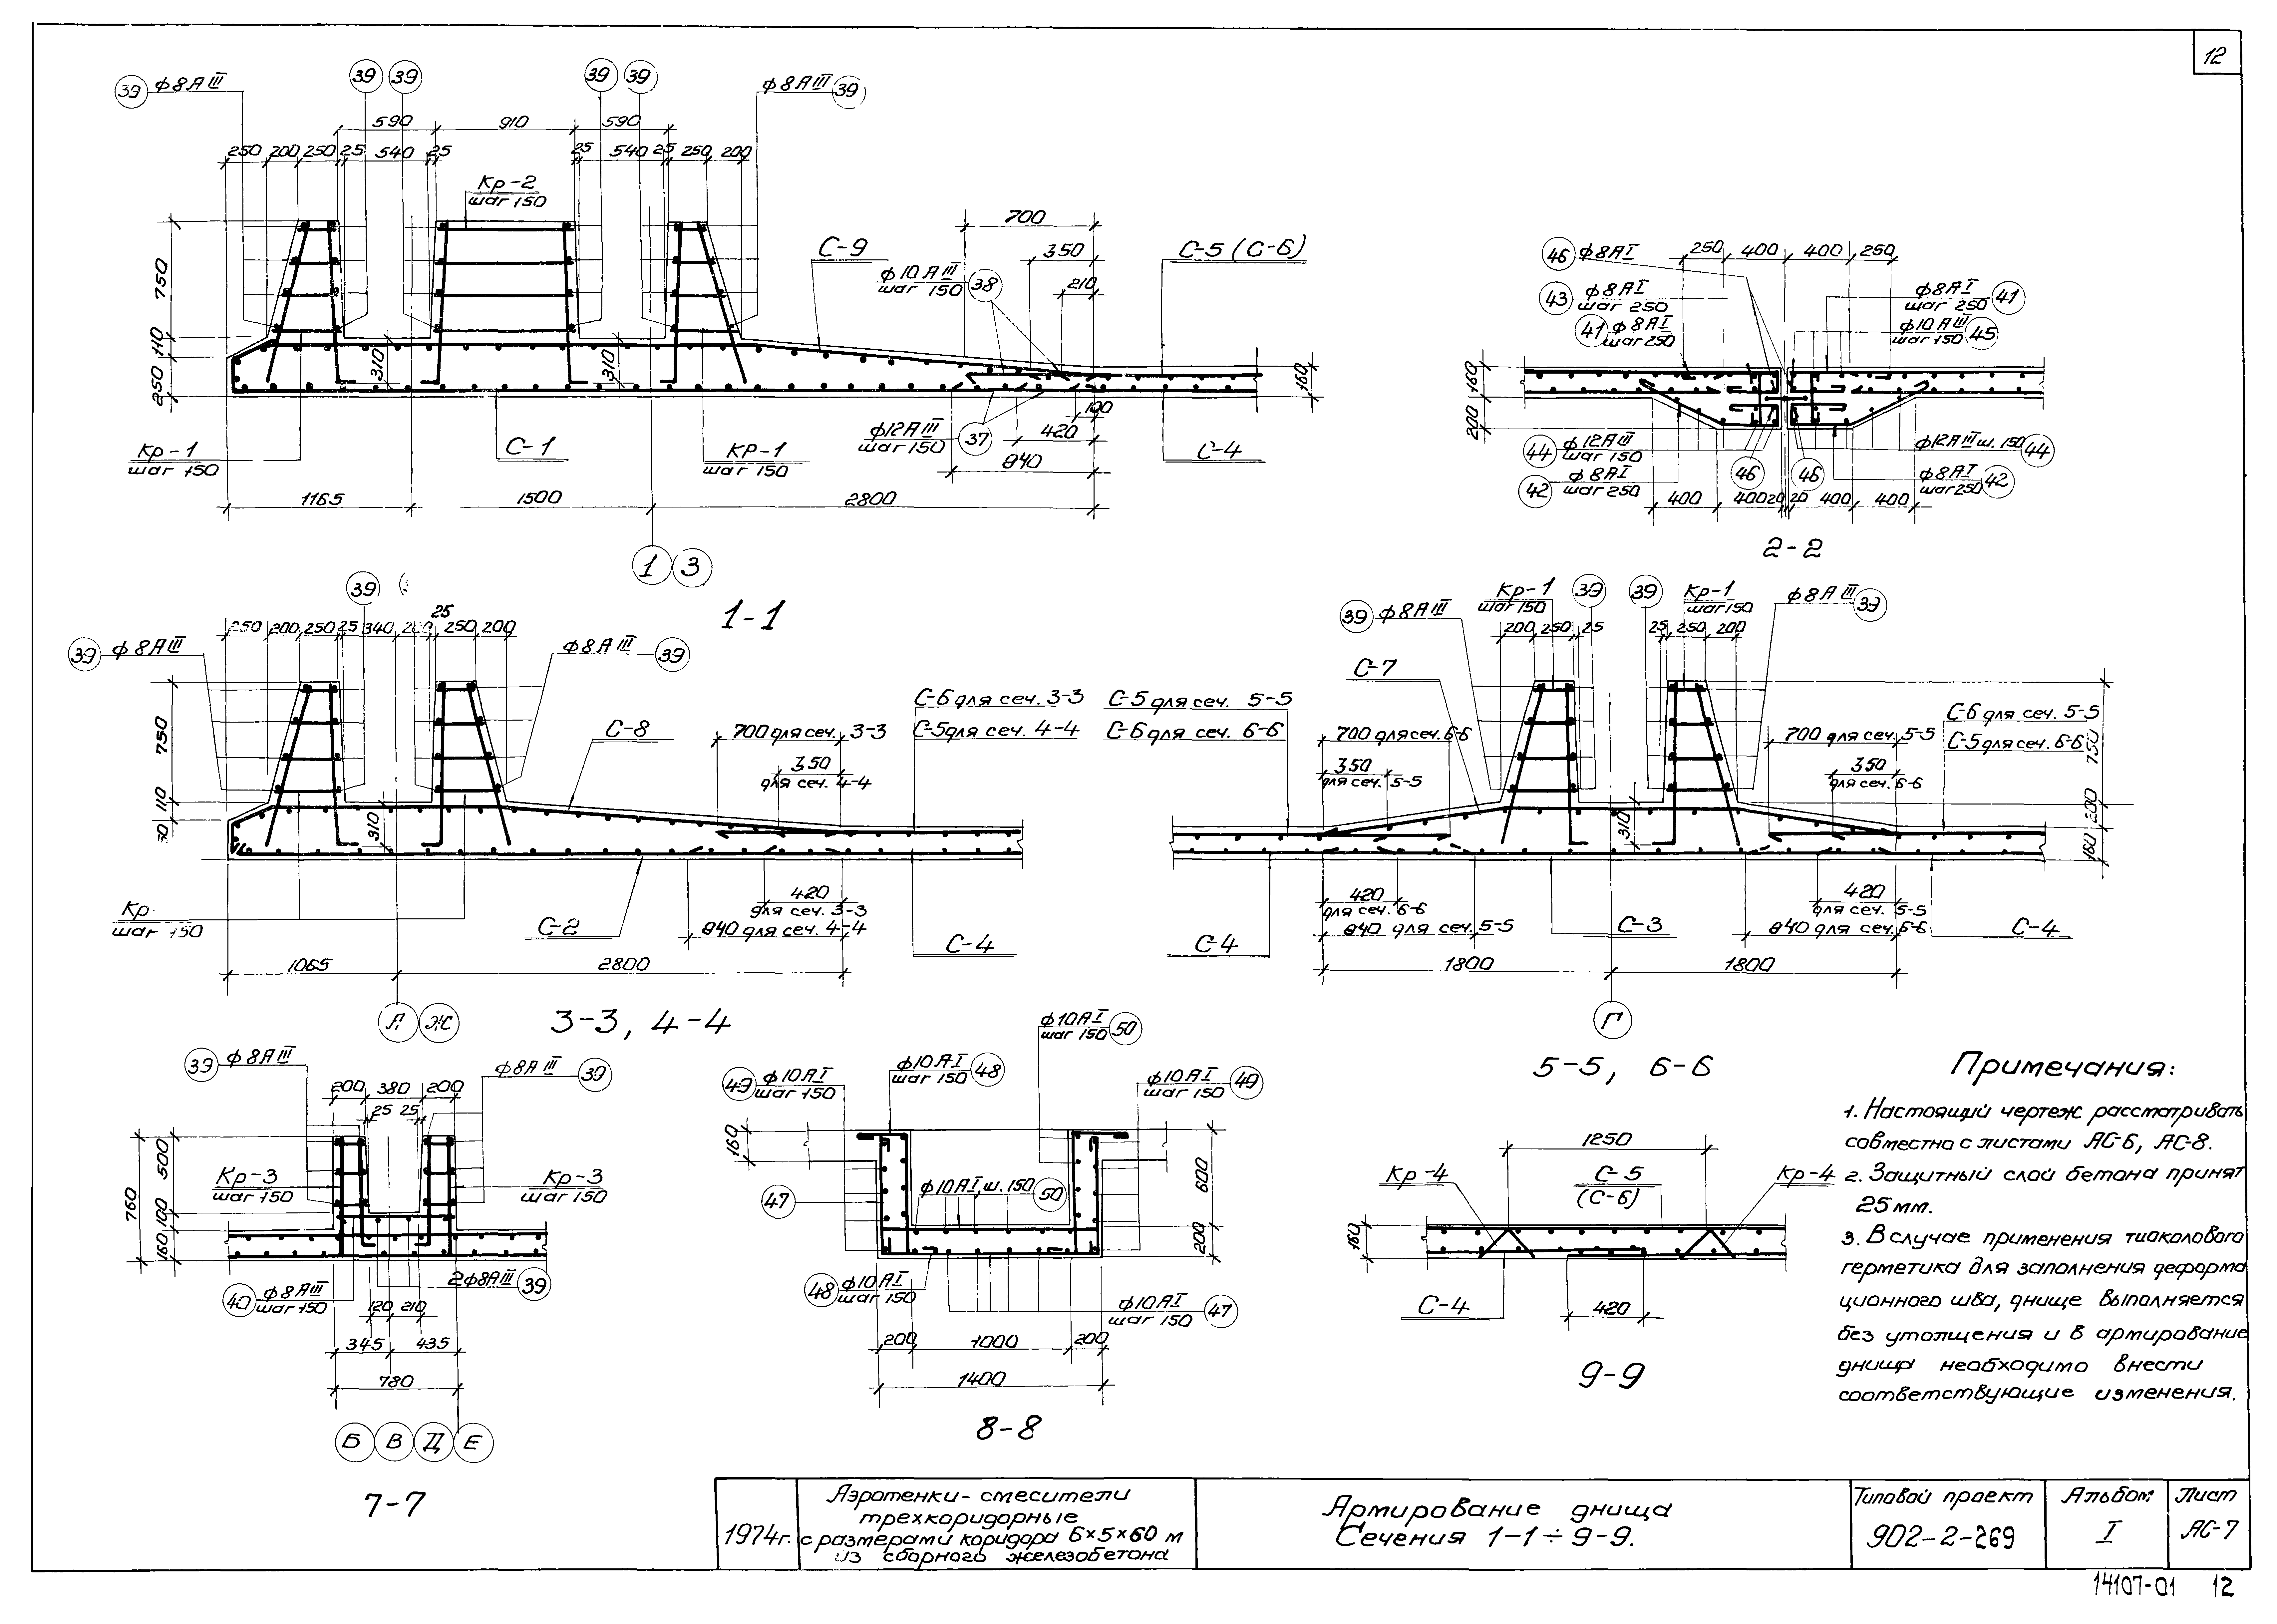 12
39 ф8АIII 39 39 39 39 ф8АIII 39
590 910 590
250 200 250 25 540 25 25 540 25 250 200
Кр-2
шаг 150
700
С-9
350
С-5 (С-6)
ф10АIII
шаг 150 38
210
750
110
250
310
310
160
100
ф12АIII
шаг 150 37
420
840
Кр-1
шаг 150
С-1
Кр-1
шаг 150
С-4
1165 1500 2800
1 3
1-1
46 ф8АI 250 400 400 250
43 ф8АI
шаг 250
ф8АI
шаг 250 41
41 ф8АI
шаг 250
ф10АIII
шаг 150 45
160
200
44 ф12АIII
шаг 150
46 46
ф12АIII ш. 150 44
42 ф8АI
шаг 250
ф8АI
шаг 250 42
400 400 20 20 400 400
2-2
39
25
250 200 250 25 340 250 200
39 ф8АIII ф8АIII 39
С-8
700 для сеч. 3-3
350
для сеч. 4-4
С-6 для сеч. 3-3
С-5 для сеч. 4-4
750
110
310
Кр
шаг 150
С-2
420
для сеч. 3-3
840 для сеч. 4-4
С-4
1065 2800
А Ж
3-3, 4-4
Кр-1
шаг 150
39 39
Кр-1
шаг 150
39 ф8АIII ф8АIII 39
200 250 25 25 250 200
С-7
С-5 для сеч. 5-5
С-6 для сеч. 6-6
700 для сеч. 6-6
350
для сеч. 5-5
С-6 для сеч. 5-5
С-5 для сеч. 6-6
700 для сеч. 5-5
350
для сеч. 6-6
750
200
160
310
420
для сеч. 6-6
840 для сеч. 5-5
С-4
С-3
420
для сеч. 5-5
840 для сеч. 6-6
С-4
1800 1800
Г
5-5, 6-6
39 ф8АIII ф8АIII 39
200 380 200
25 25
760
500
100
160
Кр-3
шаг 150
Кр-3
шаг 150
40 ф8АIII
шаг 150
2ф8АIII 39
120 210
345 435
780
Б В Д Е
7-7
ф10АI
шаг 150 50
49 ф10АI
шаг 150
ф10АI
шаг 150 48
ф10АI
шаг 150 49
160
600
200
47
ф10АI, ш. 150 50
48 ф10АI
шаг 150
ф10АI
шаг 150 47
200 1000 200
1400
8-8
1250
Кр-4
С-5
(С-6)
Кр-4
160
С-4
420
9-9
Примечания:
1. Настоящий чертеж рассматривать
совместно с листами АС-6, АС-8.
2. Защитный слой бетона принят
25мм.
3. В случае применения тиоколового
герметика для заполнения деформа
ционного шва, днище выполняется
без утолщения и в армирование
днища необходимо внести
соответствующие изменения.
1974г.
Аэротенки-смесители
трехкоридорные
с размерами коридора 6×5×60 м
из сборного железобетона
Армирование днища
Сечения 1-1÷9-9.
Типовой проект
902-2-269
Альбом
I
Лист
АС-7
14107-01 12